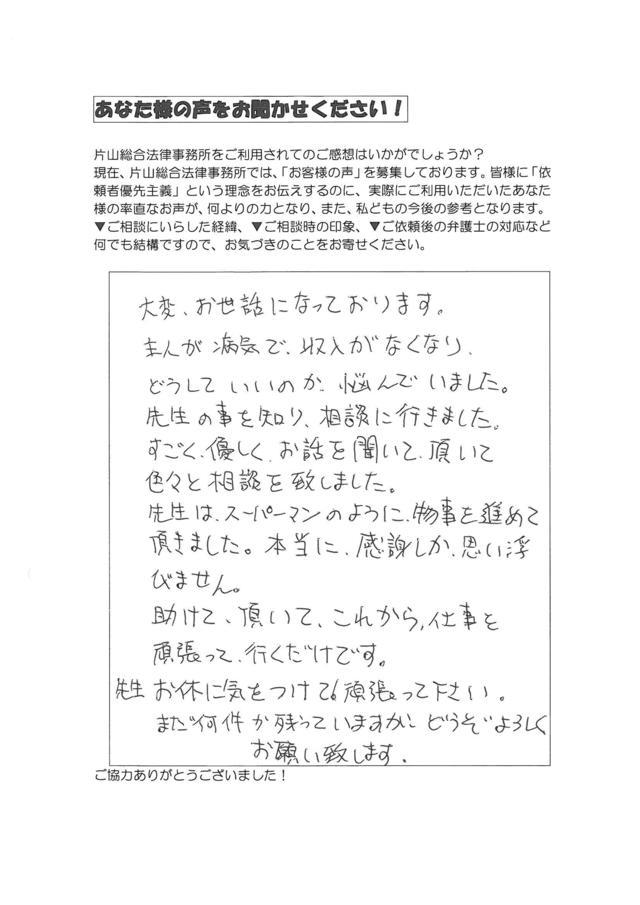 あなた様の声をお聞かせください！
片山総合法律事務所をご利用されてのご感想はいかがでしょうか？
現在、片山総合法律事務所では、「お客様の声」を募集しております。皆様に「依
頼者優先主義」という理念をお伝えするのに、実際にご利用いただいたあなた
様の率直なお声が、何よりの力となり、また、私どもの今後の参考となります。
▼ご相談にいらした経緯、▼ご相談時の印象、▼ご依頼後の弁護士の対応など
何でも結構ですので、お気づきのことをお寄せください。
大変、お世話になっております。
主人が病気で、収入がなくなり、
どうしていいのか、悩んでいました。
先生の事を知り、相談に行きました。
すごく、優しく、お話を聞いて、頂いて
色々と相談を致しました。
先生は、スーパーマンのように、物事を進めて
頂きました。本当に、感謝しか、思い浮
びません。
助けて、頂いて、これから、仕事を
頑張って、行くだけです。
先生 お休に気をつけて、頑張って下さい。
まだ何件か残っていますが、どうぞよろしく
お願い致します。
ご協力ありがとうございました！